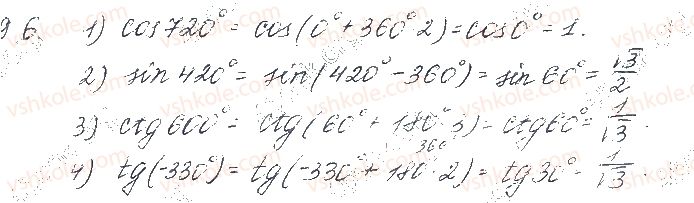 9 6. 1) cos 720° = cos(0° + 360° · 2) = cos 0° = 1.
2) sin 420° = sin(420° - 360°) = sin 60° = √3/2
3) ctg 600° = ctg(60° + 180° · 3) = ctg 60° = 1/√3.
360
4) tg(-330°) = tg(-330° + 180 · 2) = tg 30° = 1/√3.